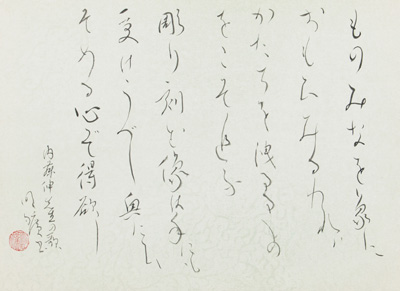 ものみなを象に
おもひみるわれハ
かたちを洩るるもの
をこそ追
彫り刻む像は手にも
受けうべし奥にひ
そめる心ぞ得欲し
内藤伸先生の歌